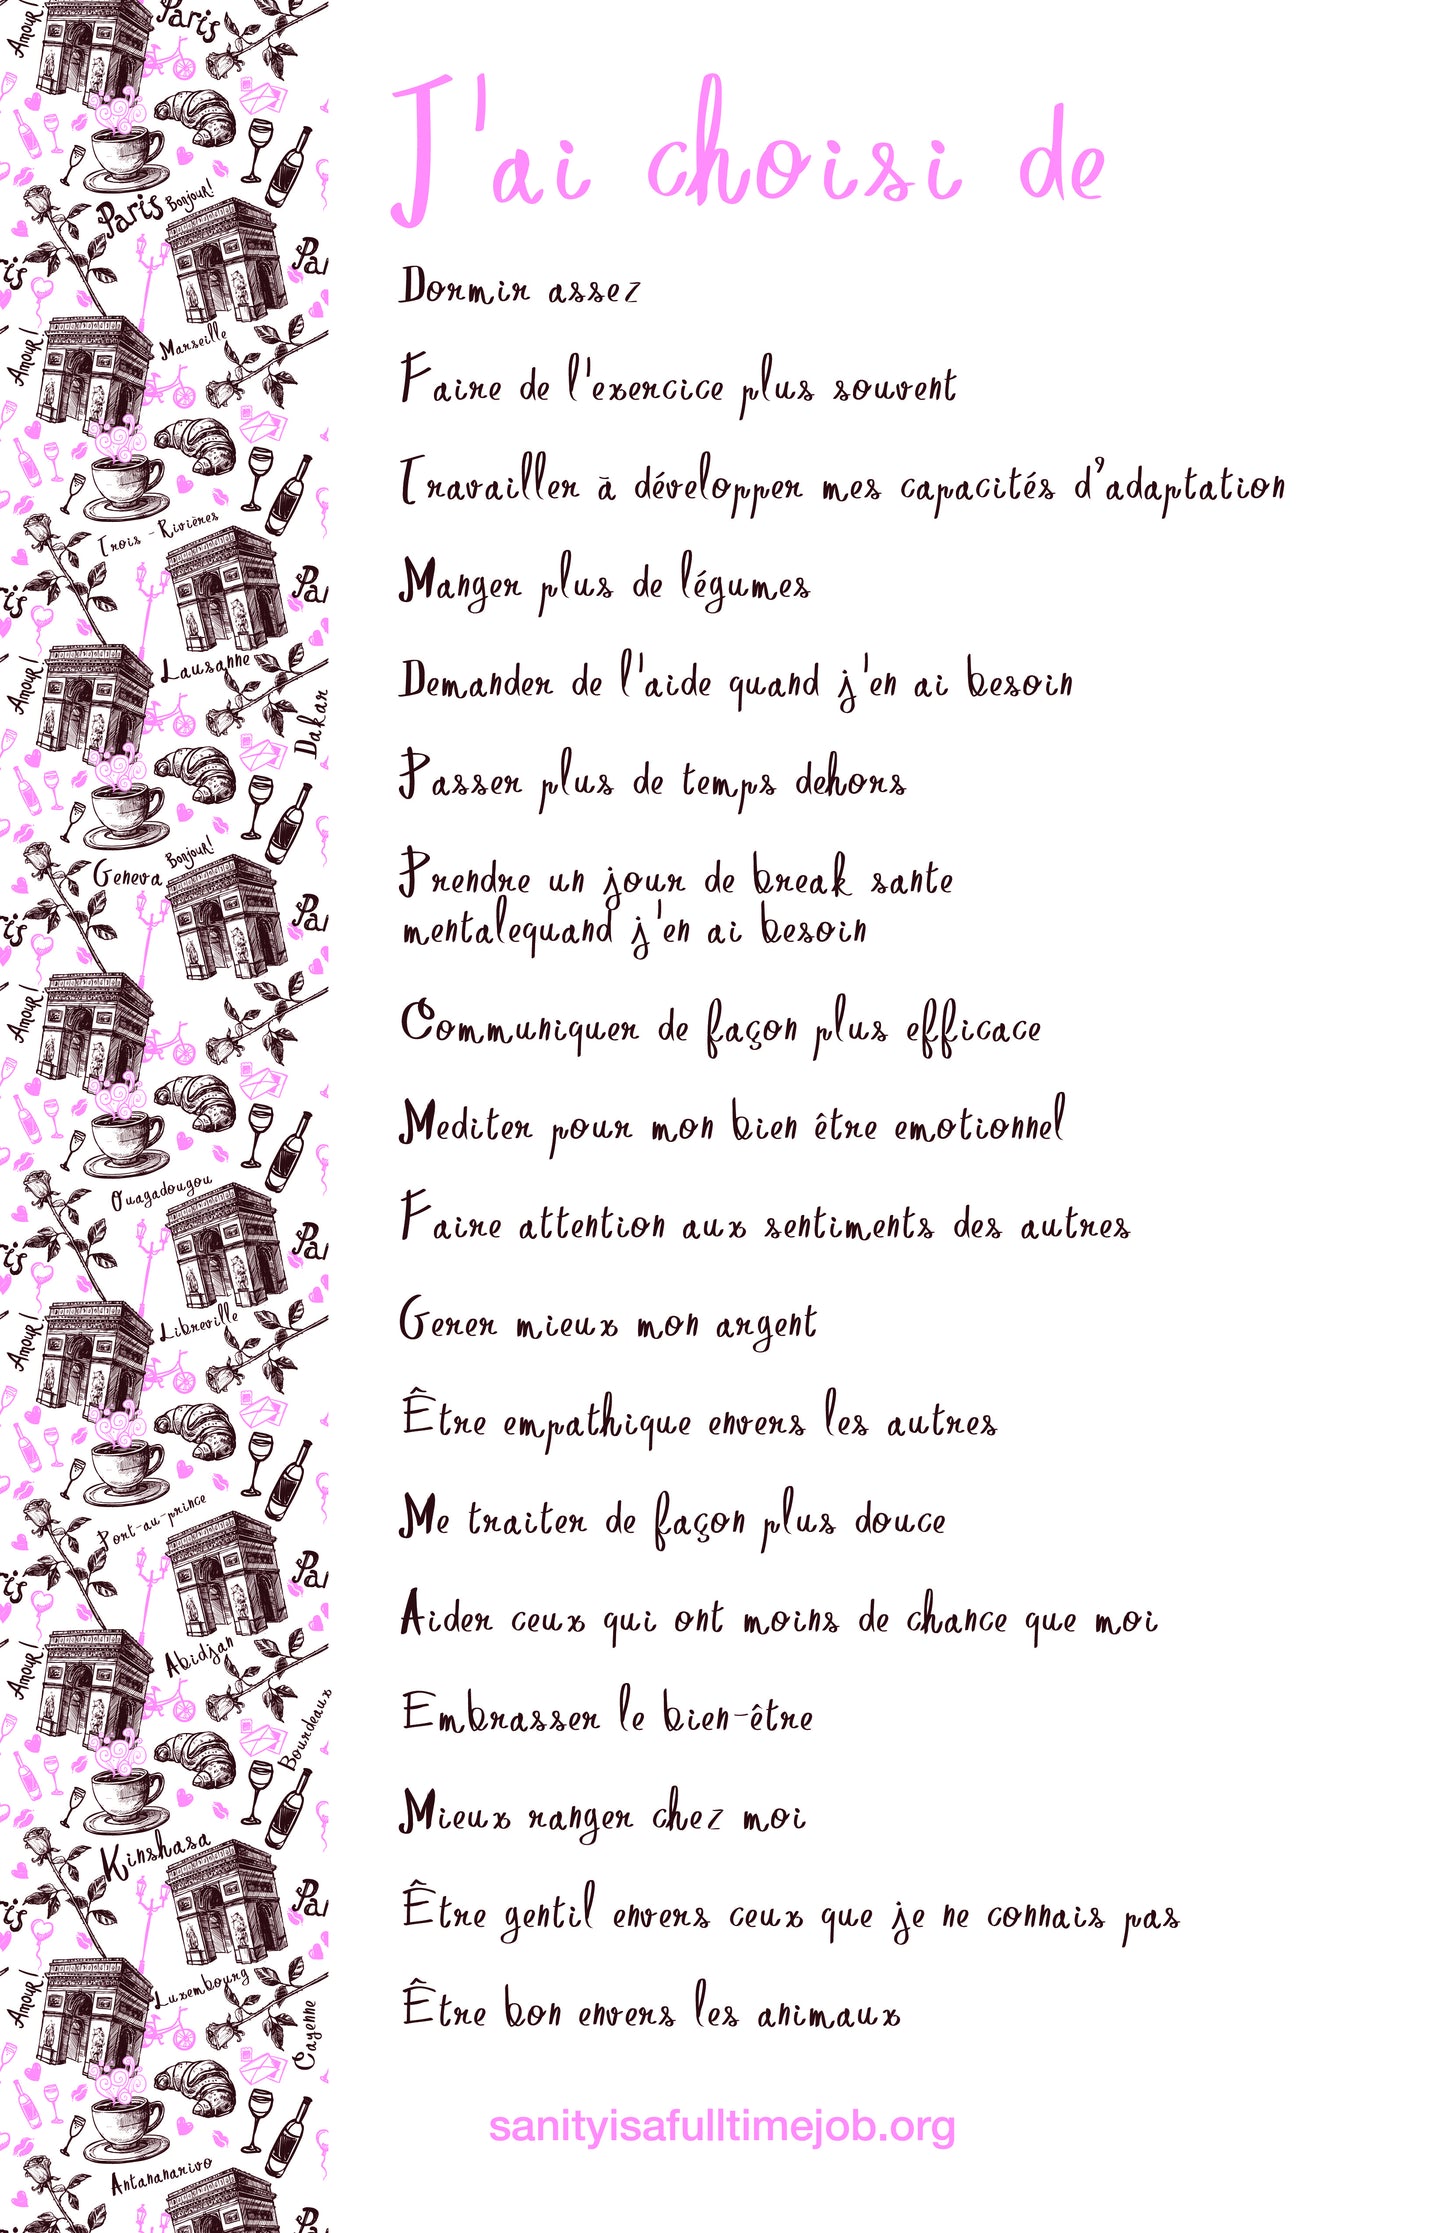 J'ai choisi de
Dormir assez
Faire de l'exercice plus souvent
Travailler à développer mes capacités d’adaptation
Manger plus de légumes
Demander de l'aide quand j'en ai besoin
Passer plus de temps dehors
Prendre un jour de break sante
mentalequand j'en ai besoin
Communiquer de façon plus efficace
Mediter pour mon bien être emotionnel
Faire attention aux sentiments des autres
Gerer mieux mon argent
Être empathique envers les autres
Me traiter de façon plus douce
Aider ceux qui ont moins de chance que moi
Embrasser le bien-être
Mieux ranger chez moi
Être gentil envers ceux que je ne connais pas
Être bon envers les animaux
sanityisafulltimejob.org
Amour!
Paris
Paris
Bonjour!
Amour!
Marseille
Trois-Rivières
Amour!
Lausanne
Dakar
Geneva
Bonjour!
Amour!
Ouagadougou
Amour!
Libreville
Port-au-prince
Amour!
Abidjan
Bordeaux
Kinshasa
Amour!
Luxembourg
Cayenne
Antananarivo